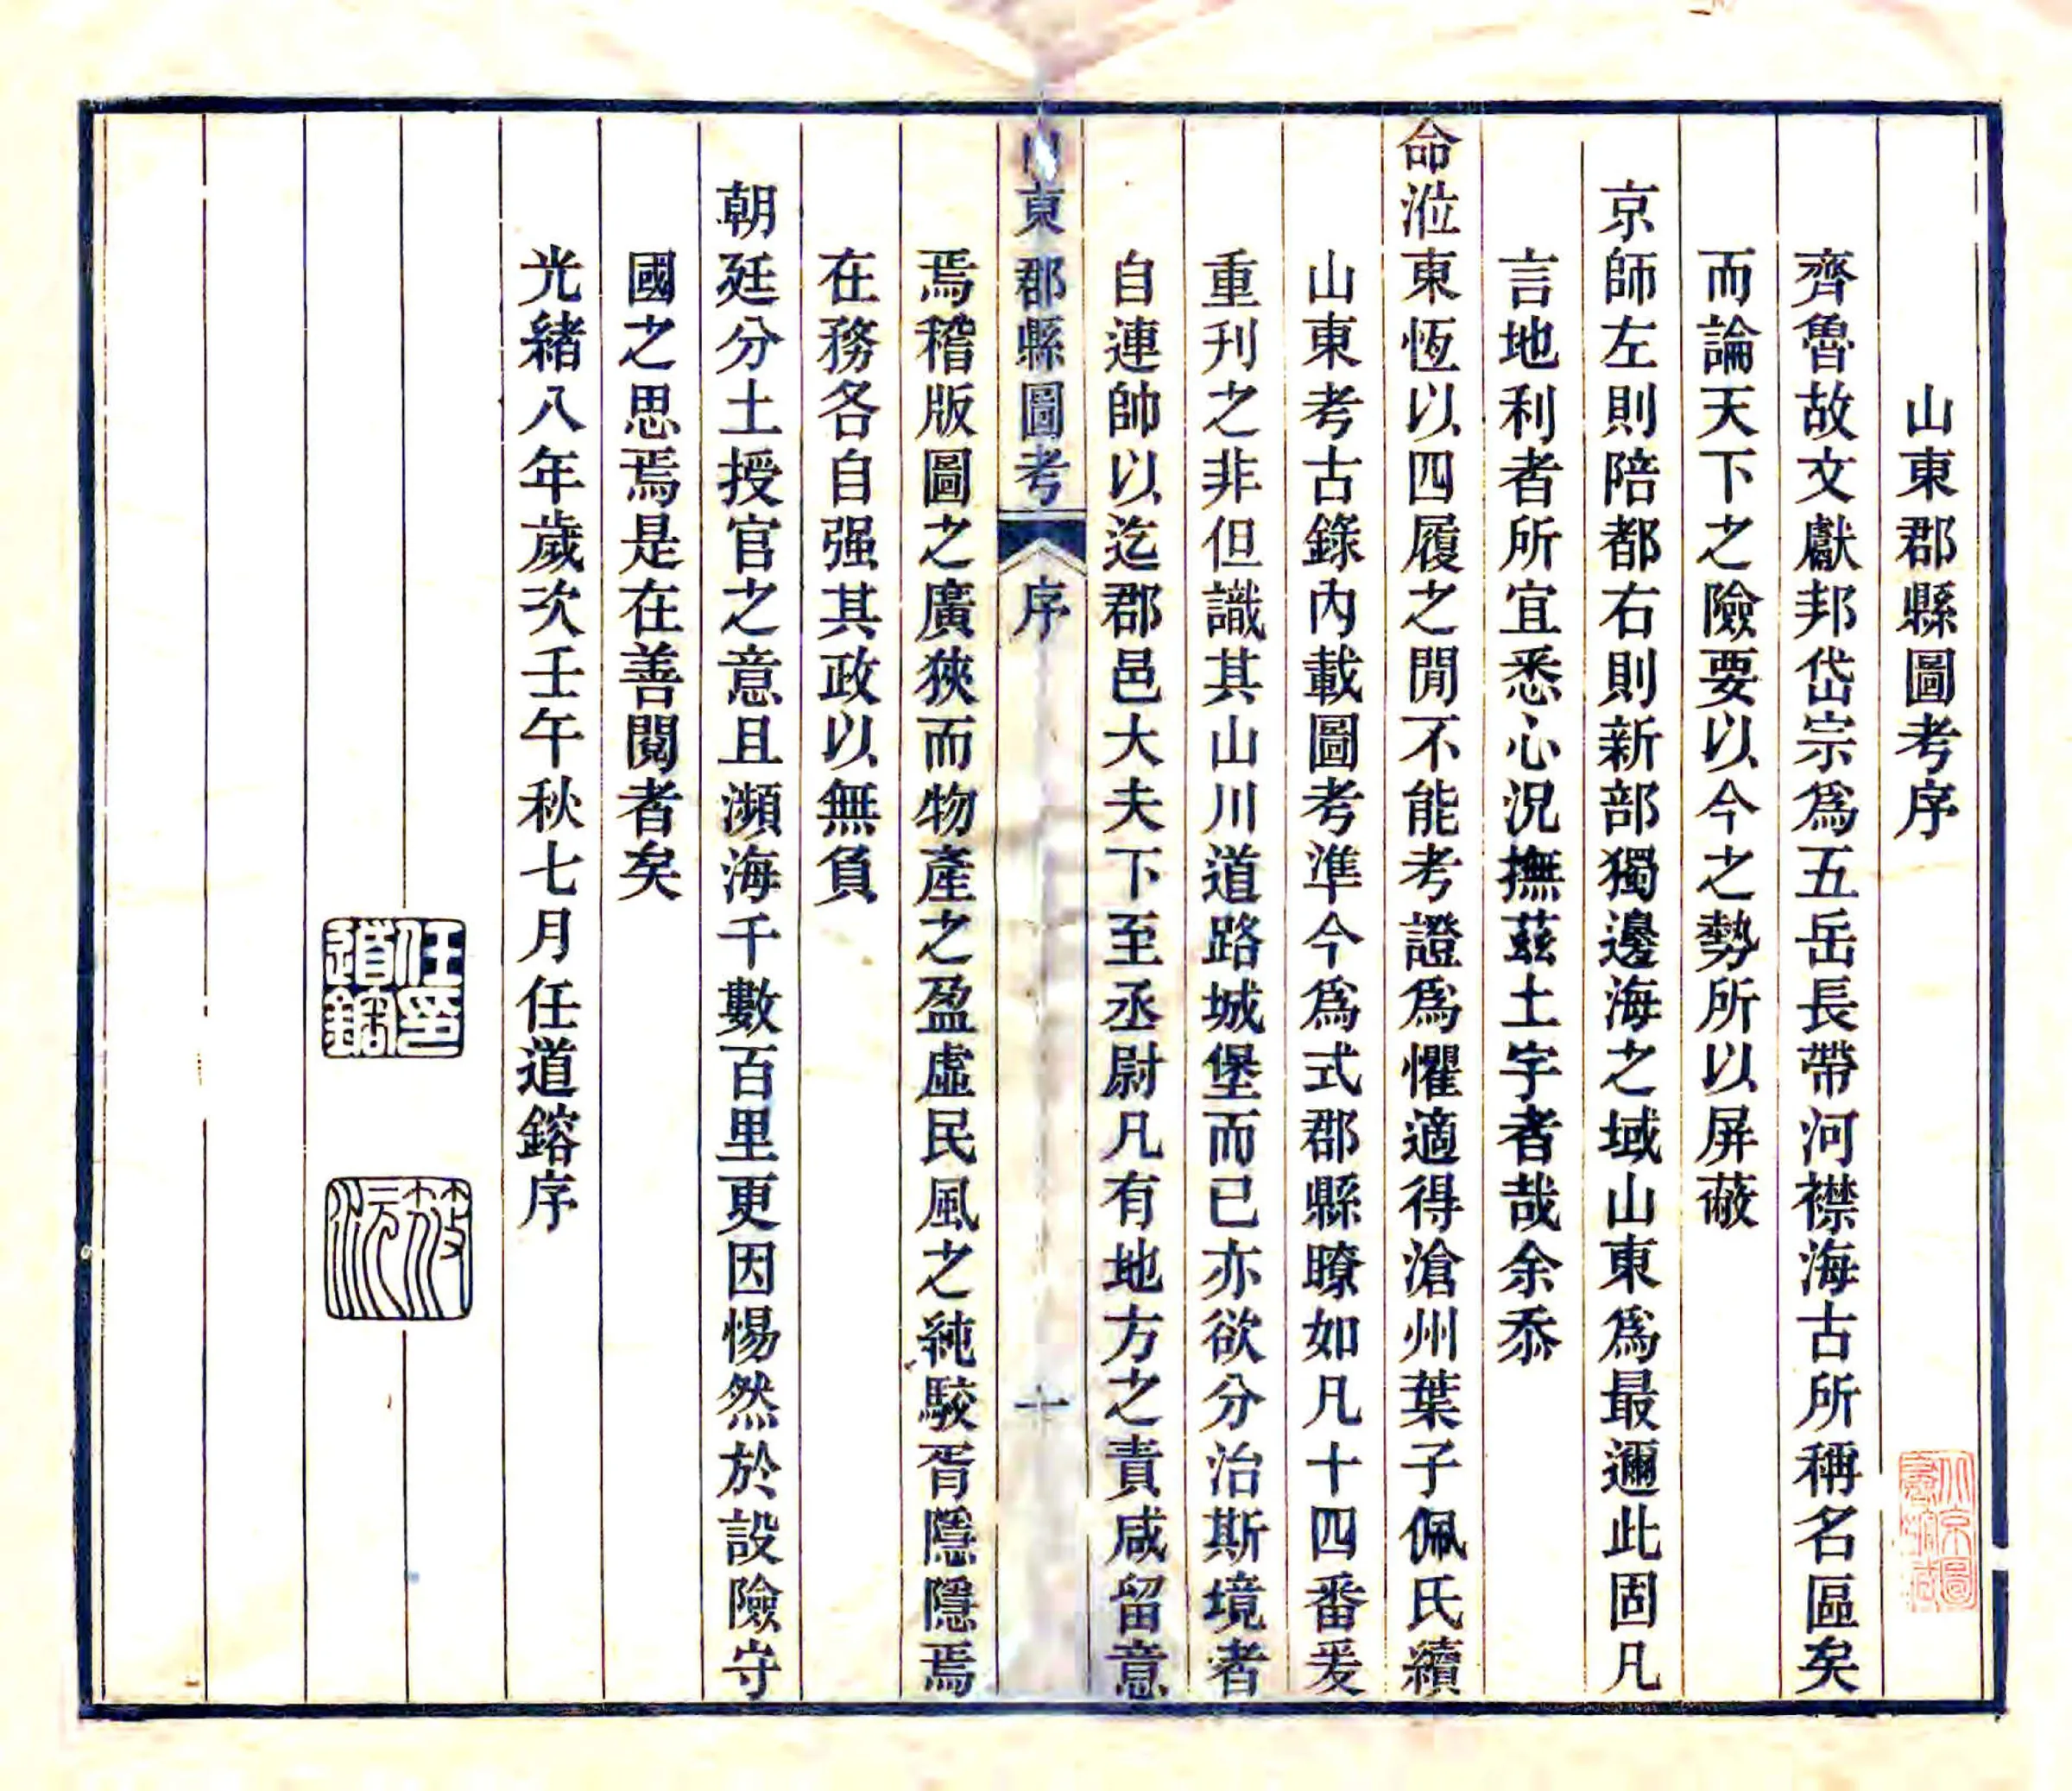 山東郡縣圖考序
齊魯故文獻邦岱宗爲五岳長帶河襟海古所稱名區矣
而論天下之險要以今之勢所以屏蔽
京師左則陪都右則新部獨邊海之域山東爲最邇此固凡
言地利者所宜悉心況撫茲土宇者哉余忝
命涖東恆以四履之閒不能考證爲懼適得滄州葉子佩氏續
山東考古錄內載圖考準今爲式郡縣瞭如凡十四番爰
重刊之非但識其山川道路城堡而已亦欲分治斯境者
自連帥以迄郡邑大夫下至丞尉凡有地方之責咸留意
山東郡縣圖考 序 十
焉稽版圖之廣狹而物產之盈虛民風之純駮胥隱隱焉
在務各自强其政以無負
朝廷分土授官之意且瀕海千數百里更因惕然於設險守
國之思焉是在善閱者矣
光緒八年歲次壬午秋七月任道鎔序
任道鎔印
筱沅